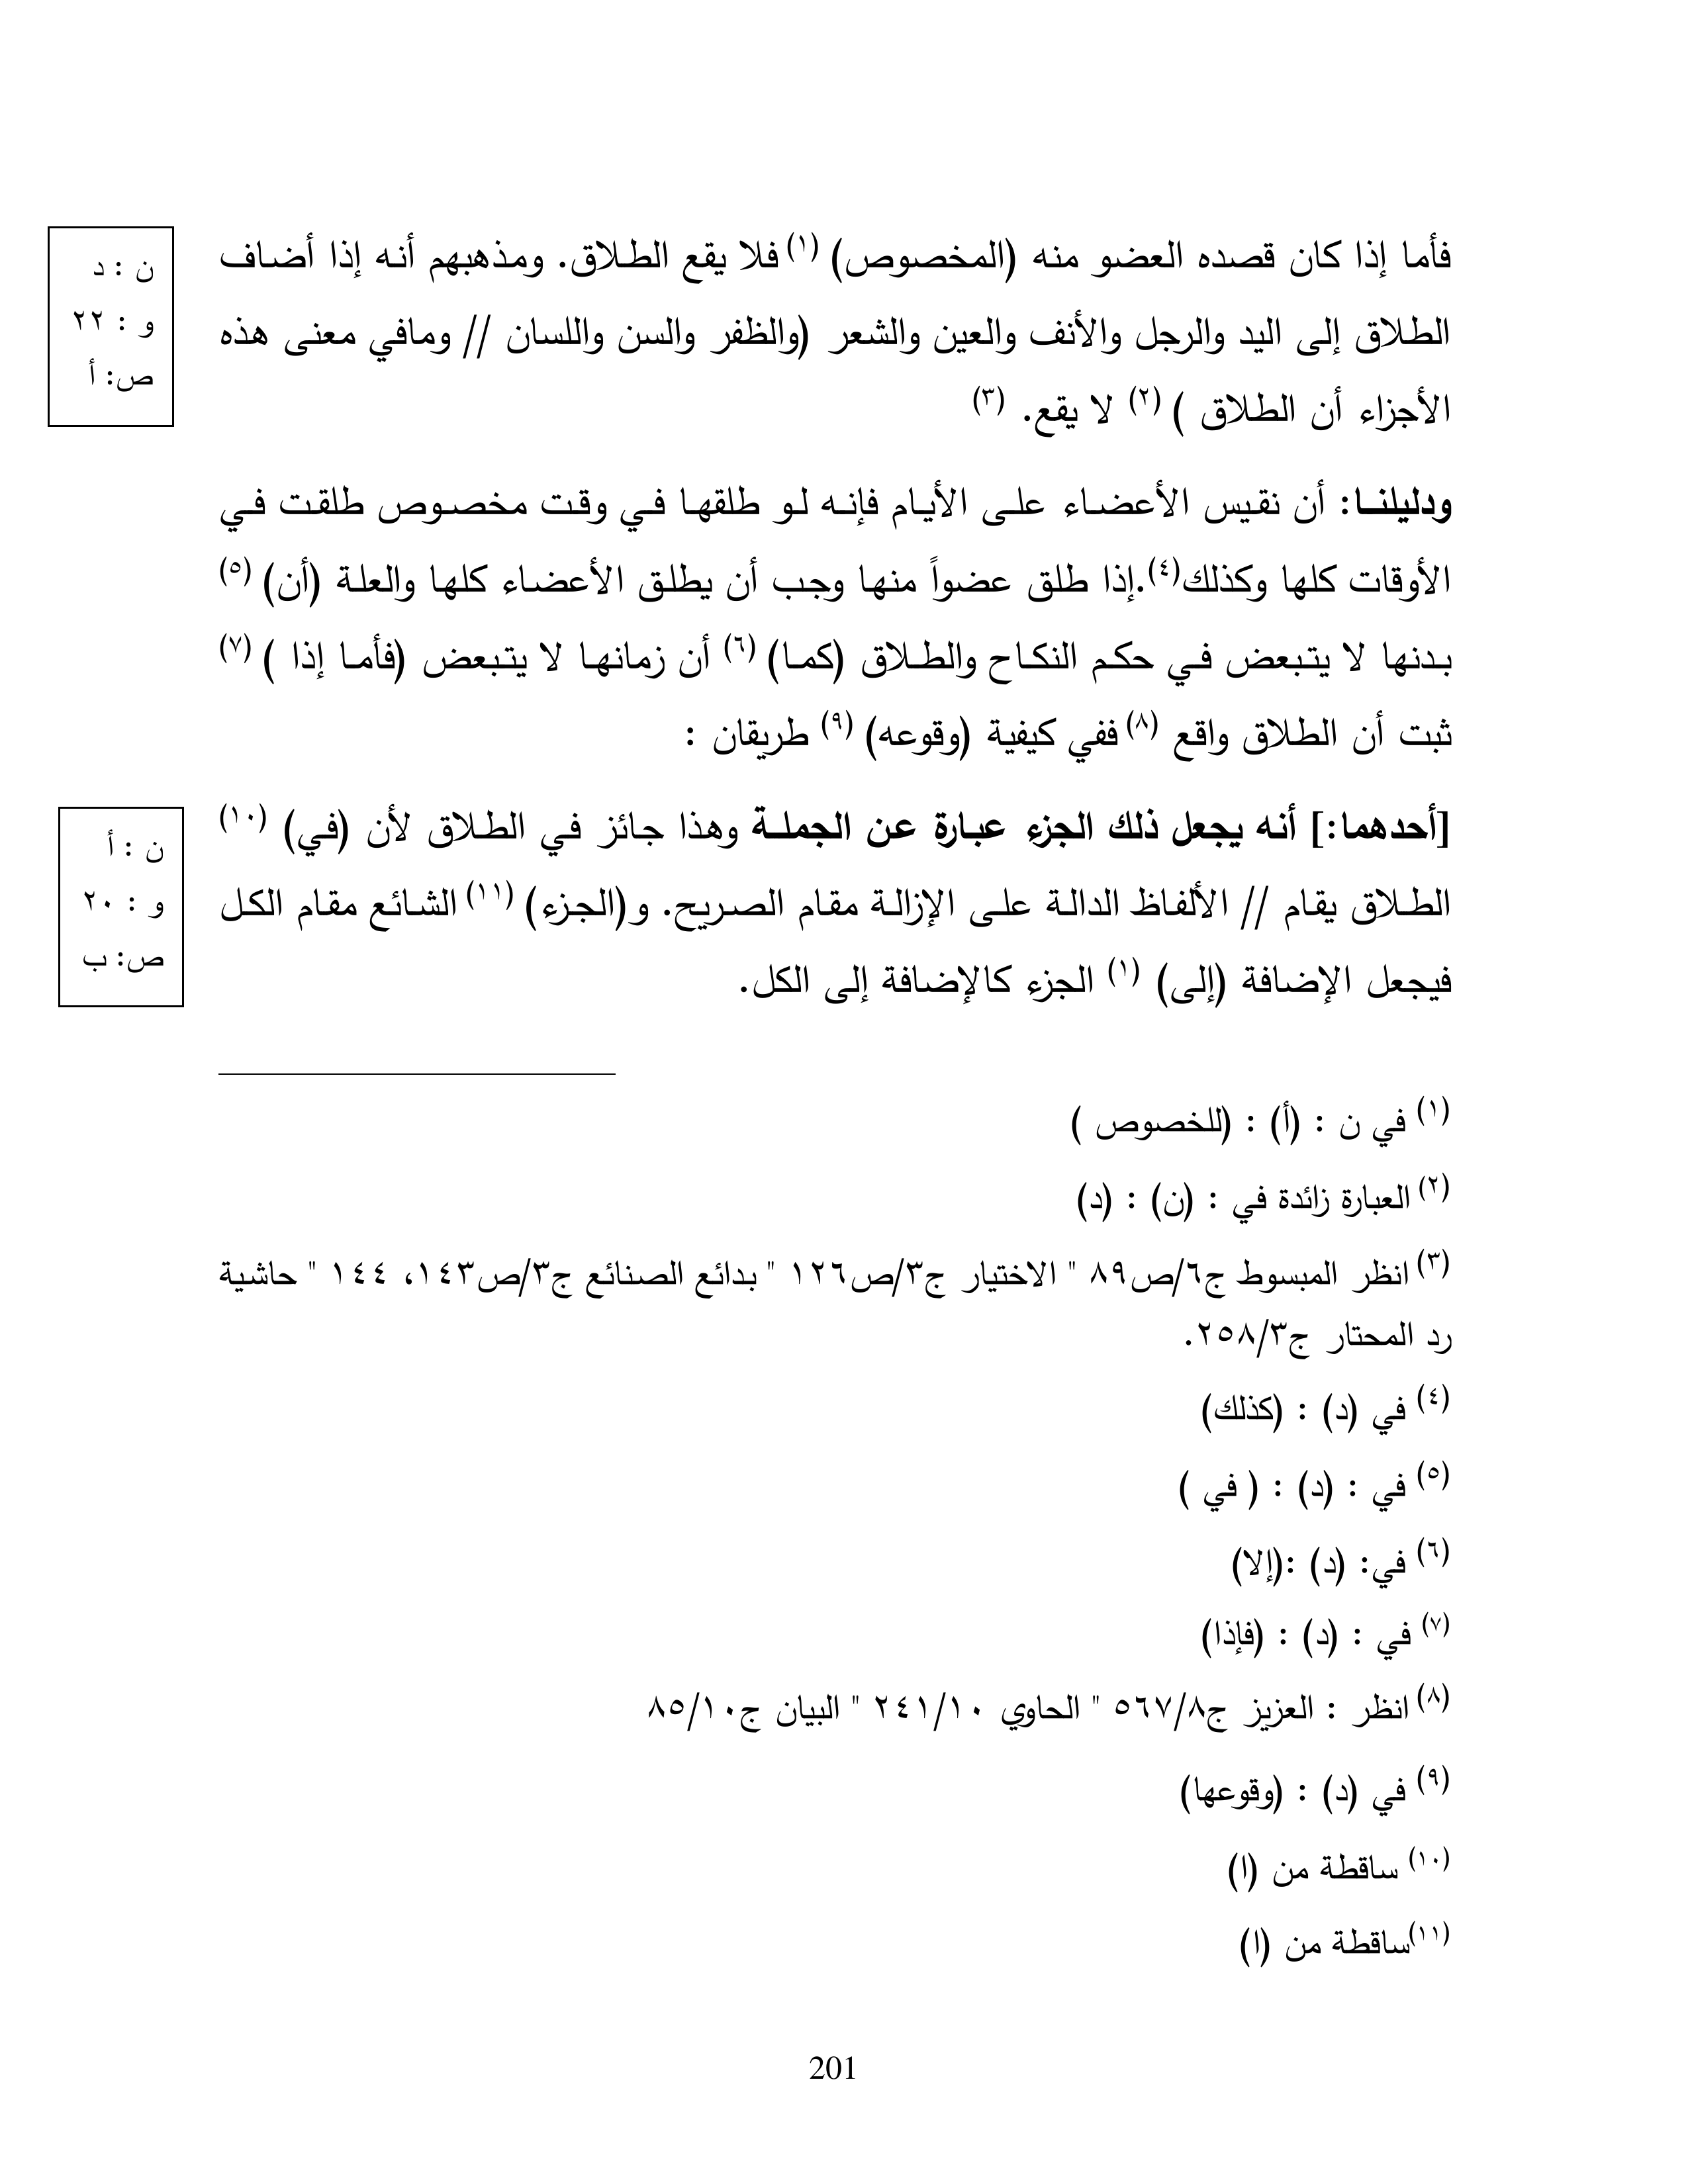 فأما إذا كان قصده العضو منه (المخصوص) (١) فلا يقع الطلاق. ومذهبهم أنه إذا أضاف
الطلاق إلى اليد والرجل والأنف والعين والشعر (والظفر والسن واللسان // ومافي معنى هذه
الأجزاء أن الطلاق ) (٢) لا يقع. (٣)
ن : د
و : ٢٢
ص: أ
ودليلنا: أن نقيس الأعضاء على الأيام فإنه لو طلقها في وقت مخصوص طلقت في
الأوقات كلها وكذلك(٤).إذا طلق عضواً منها وجب أن يطلق الأعضاء كلها والعلة (أن) (٥)
بدنها لا يتبعض في حكم النكاح والطلاق (كما) (٦) أن زمانها لا يتبعض (فأما إذا ) (٧)
ثبت أن الطلاق واقع (٨) ففي كيفية (وقوعه) (٩) طريقان :
[أحدهما:] أنه يجعل ذلك الجزء عبارة عن الجملة وهذا جائز في الطلاق لأن (في) (١٠)
الطلاق يقام // الألفاظ الدالة على الإزالة مقام الصريح. و(الجزء) (١١) الشائع مقام الكل
فيجعل الإضافة (إلى) (١) الجزء كالإضافة إلى الكل.
ن : أ
و : ٢٠
ص: ب
(١) في ن : (أ) : (للخصوص )
(٢) العبارة زائدة في : (ن) : (د)
(٣) انظر المبسوط ج٦/ص٨٩ " الاختيار ج٣/ص١٢٦ " بدائع الصنائع ج٣/ص١٤٣، ١٤٤ " حاشية
رد المحتار ج٢٥٨/٣.
(٤) في (د) : (كذلك)
(٥) في : (د) : ( في )
(٦) في: (د) :(إلا)
(٧) في : (د) : (فإذا)
(٨) انظر : العزيز ج٥٦٧/٨ " الحاوي ٢٤١/١٠ " البيان ج٨٥/١٠
(٩) في (د) : (وقوعها)
(١٠) ساقطة من (ا)
(١١)ساقطة من (ا)
201